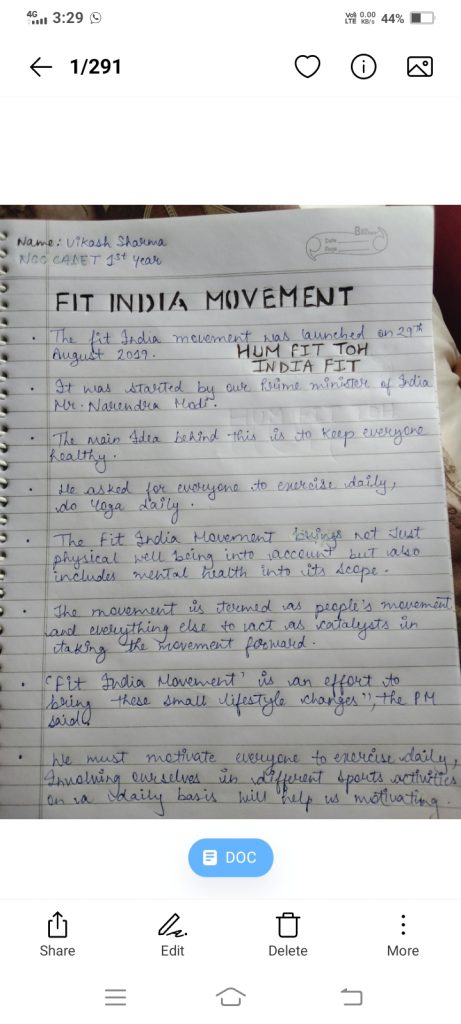 4G 3:29 Vo) 0.00 LTE KB/s 44%
1/291
Date
Page
Name: Vikash Sharma
NCC CADET 1st year
FIT INDIA MOVEMENT
• The fit India movement was launched on 29th
August 2019.
HUM FIT TOH
INDIA FIT
• It was started by our Prime minister of India
Mr. Narendra Modi.
• The main Idea behind this is to keep everyone
healthy.
• He asked for everyone to exercise daily,
do Yoga daily.
• The Fit India Movement brings not Just
physical well being into account but also
includes mental health into its scope.
• The movement is termed as people's movement
and everything else to act as catalysts in
taking the movement forward.
• "Fit India Movement' is an effort to
bring these small lifestyle changes", the PM
said
• We must motivate everyone to exercise daily,
Involving ourselves in different sports activities
on a daily basis will help us motivating.
DOC
Share Edit Delete More